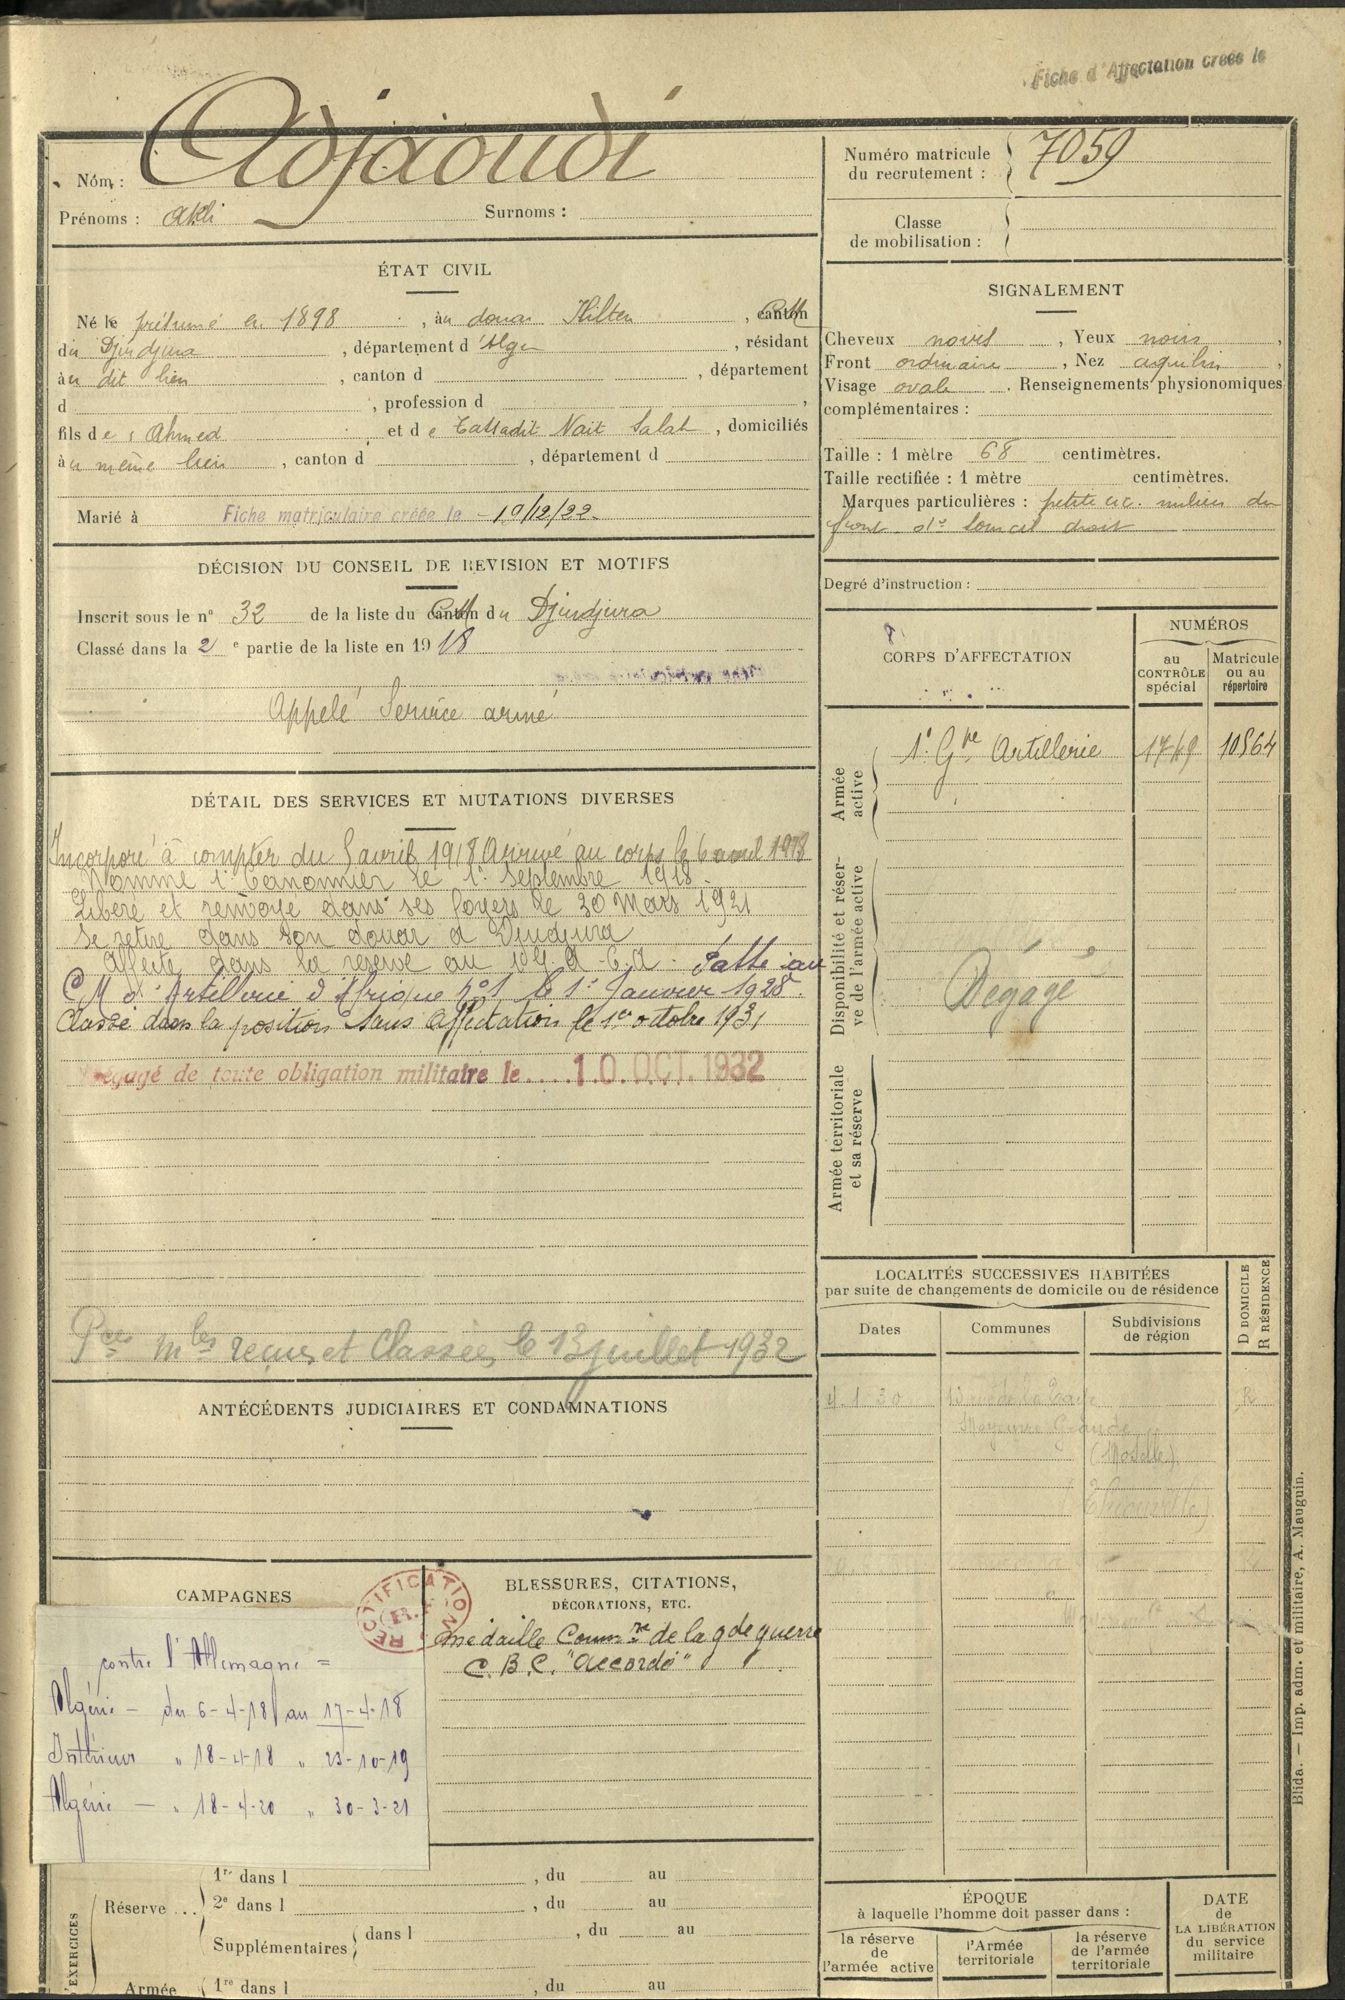 Fiche d'Affectation créée le
Nom : Adjaoudi
Prénoms : Akli Surnoms :
Numéro matricule
du recrutement : 7059
Classe
de mobilisation :
ÉTAT CIVIL
Né le présumé en 1898, au douar
du Djurdjura, département d'Alger, résidant
au dit lieu, canton d , département
d , profession d ,
fils de Ahmed et de Tassadit Nait Salah, domiciliés
au même lieu, canton d , département d
Marié à Fiche matriculaire créée le 19/12/22
SIGNALEMENT
Cheveux noirs, Yeux noirs,
Front ordinaire, Nez aquilin,
Visage ovale. Renseignements physionomiques
complémentaires :
Taille : 1 mètre 68 centimètres.
Taille rectifiée : 1 mètre centimètres.
Marques particulières : petite cic. milieu du
front et sourcil droit
Degré d'instruction :
DÉCISION DU CONSEIL DE REVISION ET MOTIFS
Inscrit sous le n° 32 de la liste du canton du Djurdjura
Classé dans la 2e partie de la liste en 1918
Appelé Service armé
CORPS D'AFFECTATION
NUMÉROS
au
CONTRÔLE
spécial
Matricule
ou au
répertoire
Armée
active
1er Gpe Artillerie 1749 10564
Disponibilité et réser-
ve de l'armée active
Dégagé
Armée territoriale
et sa réserve
DÉTAIL DES SERVICES ET MUTATIONS DIVERSES
Incorporé à compter du 5 avril 1918 Arrivé au corps le 6 avril 1918
Nommé 1er Canonnier le 1er Septembre 1918.
Libéré et renvoyé dans ses foyers le 30 Mars 1921
Se retire dans son douar à Djurdjura
Affecté dans la réserve au A.C.A. Passé au
C M d'Artillerie d'Afrique n°1 le 1er Janvier 1928.
Classé dans la position sans affectation le 1er octobre 1931
Dégagé de toute obligation militaire le.... 10.OCT.1932
Pces mles reçues et Classées le 13 juillet 1932
LOCALITÉS SUCCESSIVES HABITÉES
par suite de changements de domicile ou de résidence
D DOMICILE
R RÉSIDENCE
Dates Communes Subdivisions
de région
4.1.30 R
(Moselle)
(Thionville)
ANTÉCÉDENTS JUDICIAIRES ET CONDAMNATIONS
CAMPAGNES
RECTIFICATION
contre l'Allemagne =
Algérie - du 6-4-18 au 17-4-18
Intérieur " 18-4-18 " 23-10-19
Algérie - " 18-4-20 " 30-3-21
BLESSURES, CITATIONS,
DÉCORATIONS, ETC.
médaille Comm.ve de la gde guerre
C.B.C. "accordé"
D'EXERCICES
Réserve ...
1re dans l , du au
2e dans l , du au
Supplémentaires dans l , du au
Armée 1re dans l , du au
ÉPOQUE
à laquelle l'homme doit passer dans :
la réserve
de
l'armée active
l'Armée
territoriale
la réserve
de l'armée
territoriale
DATE
de
LA LIBÉRATION
du service
militaire
Blida. — Imp. adm. et militaire, A. Mauguin.